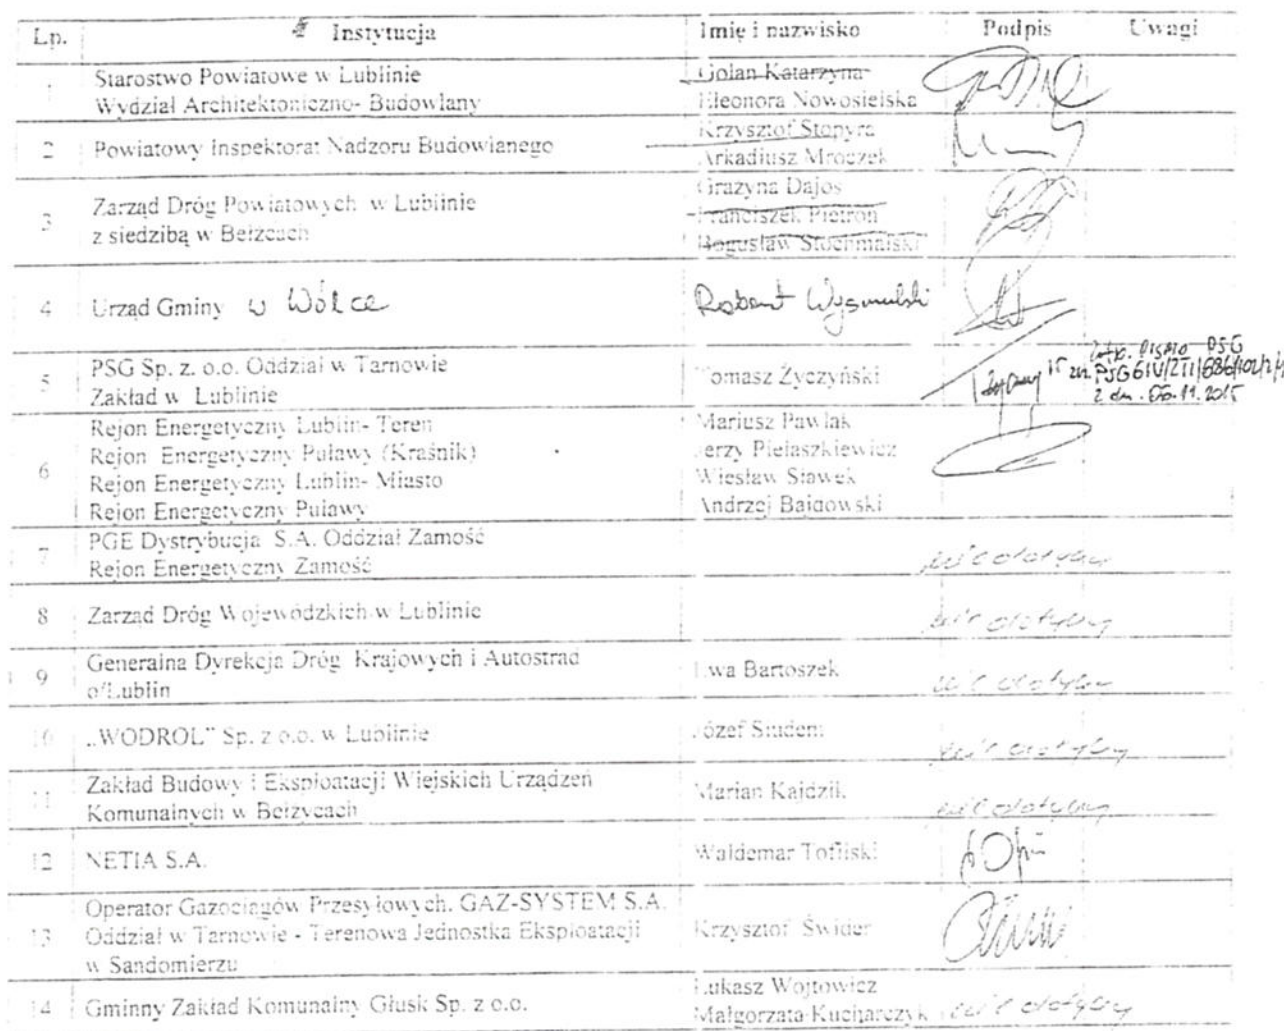 Lp. Instytucja Imię i nazwisko Podpis Uwagi
1 Starostwo Powiatowe w Lublinie
Wydział Architektoniczno- Budowlany
Golan Katarzyna
Eleonora Nowosielska
2 Powiatowy Inspektorat Nadzoru Budowlanego
Krzysztof Stopyra
Arkadiusz Mroczek
3 Zarząd Dróg Powiatowych w Lublinie
z siedzibą w Bełżcach
Grażyna Dajos
Franciszek Pietroń
Bogusław Stochmalski
4 Urząd Gminy w Wólce Robert
5 PSG Sp. z. o.o. Oddział w Tarnowie
Zakład w Lublinie
Tomasz Życzyński
pismo PSG
z dn. 05.11.2015
6 Rejon Energetyczny Lublin- Teren
Rejon Energetyczny Puławy (Kraśnik)
Rejon Energetyczny Lublin- Miasto
Rejon Energetyczny Puławy
Mariusz Pawlak
Jerzy Pielaszkiewicz
Wiesław Sławek
Andrzej Bajdowski
7 PGE Dystrybucja S.A. Oddział Zamość
Rejon Energetyczny Zamość
nie dotyczy
8 Zarząd Dróg Wojewódzkich w Lublinie nie dotyczy
9 Generalna Dyrekcja Dróg Krajowych i Autostrad
o/Lublin
Ewa Bartoszek nie dotyczy
10 „WODROL" Sp. z o.o. w Lublinie Józef Student nie dotyczy
11 Zakład Budowy i Eksploatacji Wiejskich Urządzeń
Komunalnych w Bełżycach
Marian Kajdzik nie dotyczy
12 NETIA S.A. Waldemar Tofilski
13 Operator Gazociągów Przesyłowych. GAZ-SYSTEM S.A.
Oddział w Tarnowie - Terenowa Jednostka Eksploatacji
w Sandomierzu
Krzysztof Świder
14 Gminny Zakład Komunalny Głusk Sp. z o.o.
Łukasz Wojtowicz
Małgorzata Kucharczyk nie dotyczy